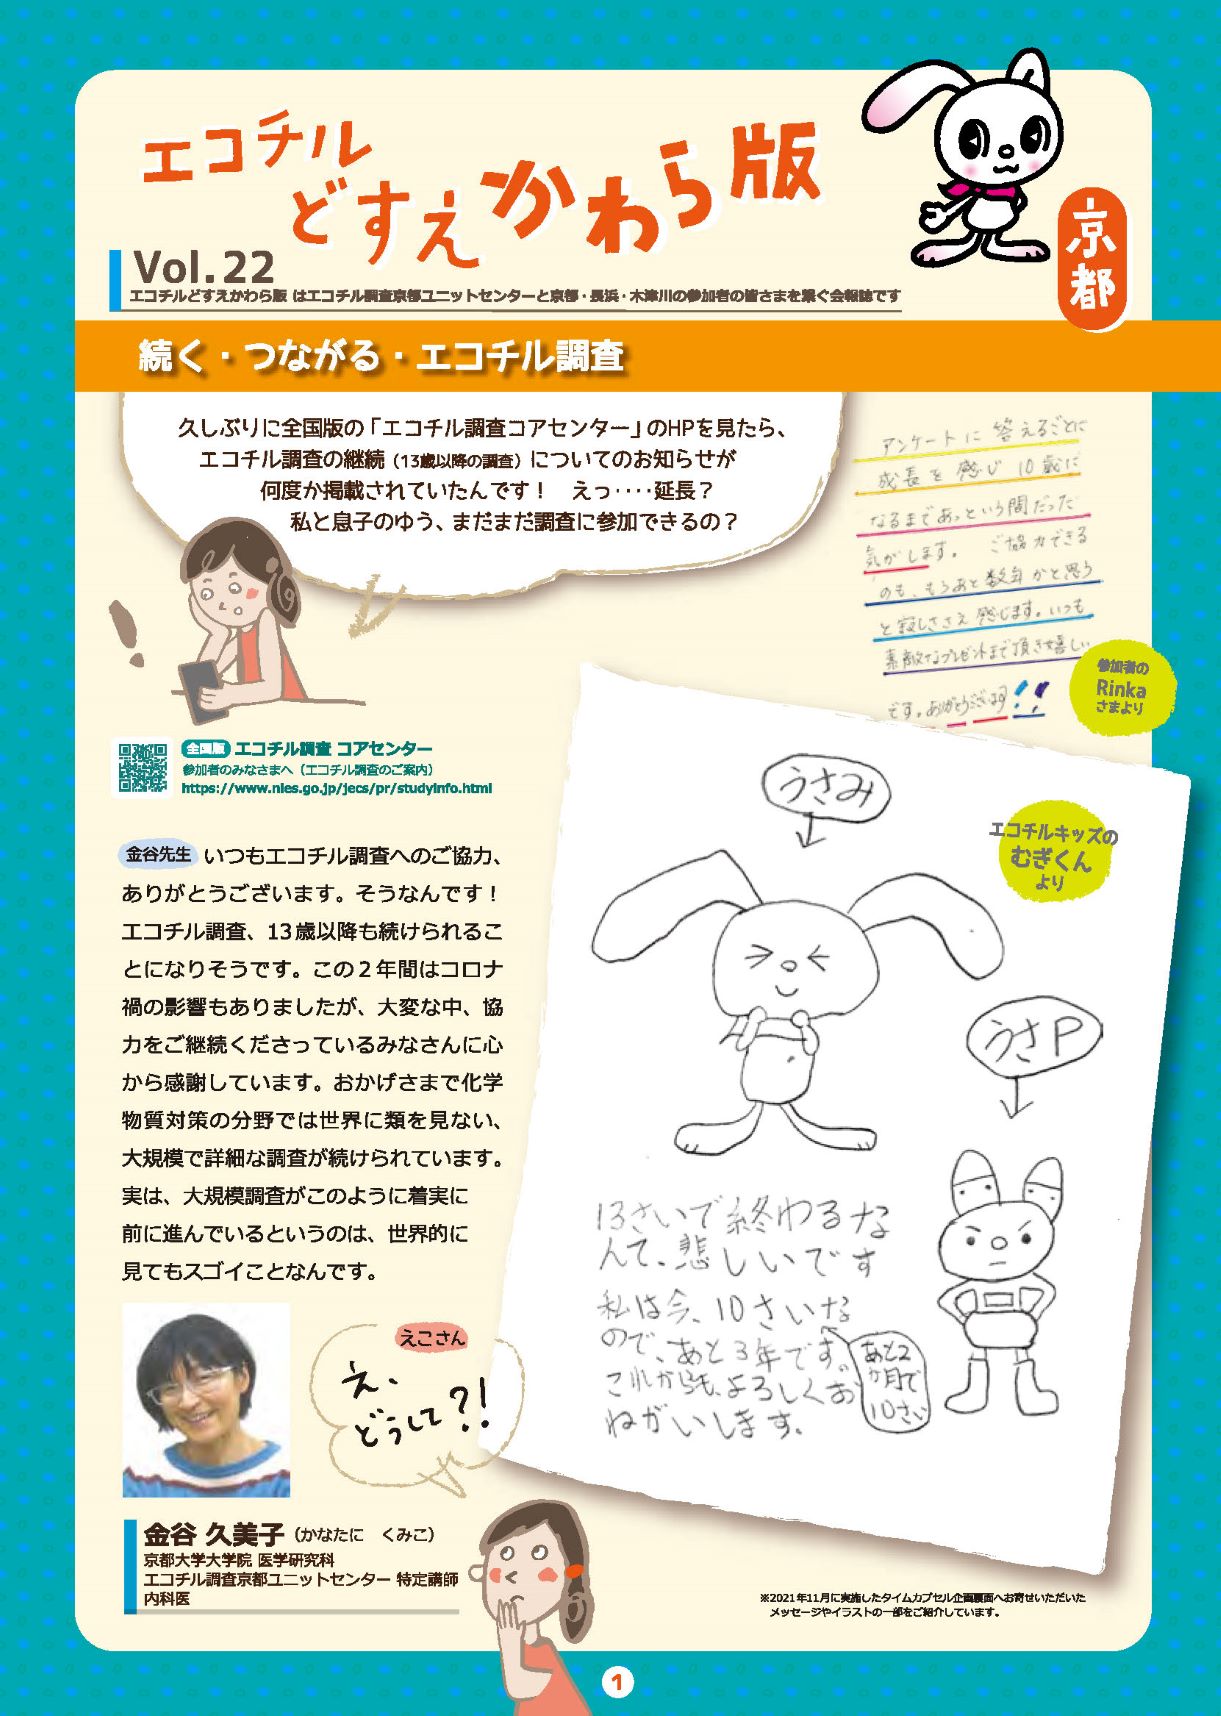 エコチル
どすえかわら版
京都
Vol.22
エコチルどすえかわら版 はエコチル調査京都ユニットセンターと京都・長浜・木津川の参加者の皆さまを繋ぐ会報誌です
続く・つながる・エコチル調査
久しぶりに全国版の「エコチル調査コアセンター」のHPを見たら、
エコチル調査の継続（13歳以降の調査）についてのお知らせが
何度か掲載されていたんです！　えっ‥‥延長？
私と息子のゆう、まだまだ調査に参加できるの？
アンケートに 答えるごとに
成長を 感じ 10歳に
なるまであっという間だった
気がします。 ご協力できる
のも、もうあと数年かと思う
と寂しささえ感じます。いつも
素敵なプレゼントまで頂き嬉しい
です。ありがとうございます!!
参加者の
Rinka
さまより
全国版 エコチル調査 コアセンター
参加者のみなさまへ（エコチル調査のご案内）
https://www.nies.go.jp/jecs/pr/studyinfo.html
金谷先生 いつもエコチル調査へのご協力、
ありがとうございます。そうなんです！
エコチル調査、13歳以降も続けられるこ
とになりそうです。この２年間はコロナ
禍の影響もありましたが、大変な中、協
力をご継続くださっているみなさんに心
から感謝しています。おかげさまで化学
物質対策の分野では世界に類を見ない、
大規模で詳細な調査が続けられています。
実は、大規模調査がこのように着実に
前に進んでいるというのは、世界的に
見てもスゴイことなんです。
うさみ
エコチルキッズの
むぎくん
より
うさP
13さいで終わるな
んて、悲しいです
私は今、10さいな
ので、あと3年です。
これからも、よろしくお
ねがいします。
あと2
か月で
10さい
えこさん
え、
どうして?!
金谷 久美子（かなたに　くみこ）
京都大学大学院 医学研究科
エコチル調査京都ユニットセンター 特定講師
内科医
※2021年11月に実施したタイムカプセル企画裏面へお寄せいただいた
メッセージやイラストの一部をご紹介しています。
1